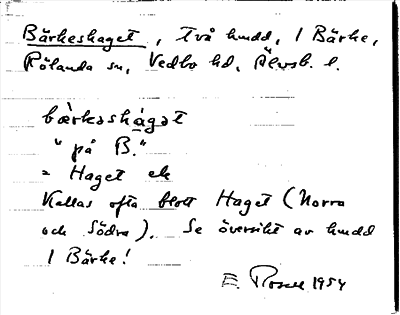 Bärkeshaget, Två hmdd, 1 Bärke,
Rölanda sn, Vedbo hd, Älvsb. l.
bærkashágat
"på B."
= Haget ek
Kallas ofta blott Haget (Norra
och Södra). Se översikt av hmdd
1 Bärke!
E. 1954